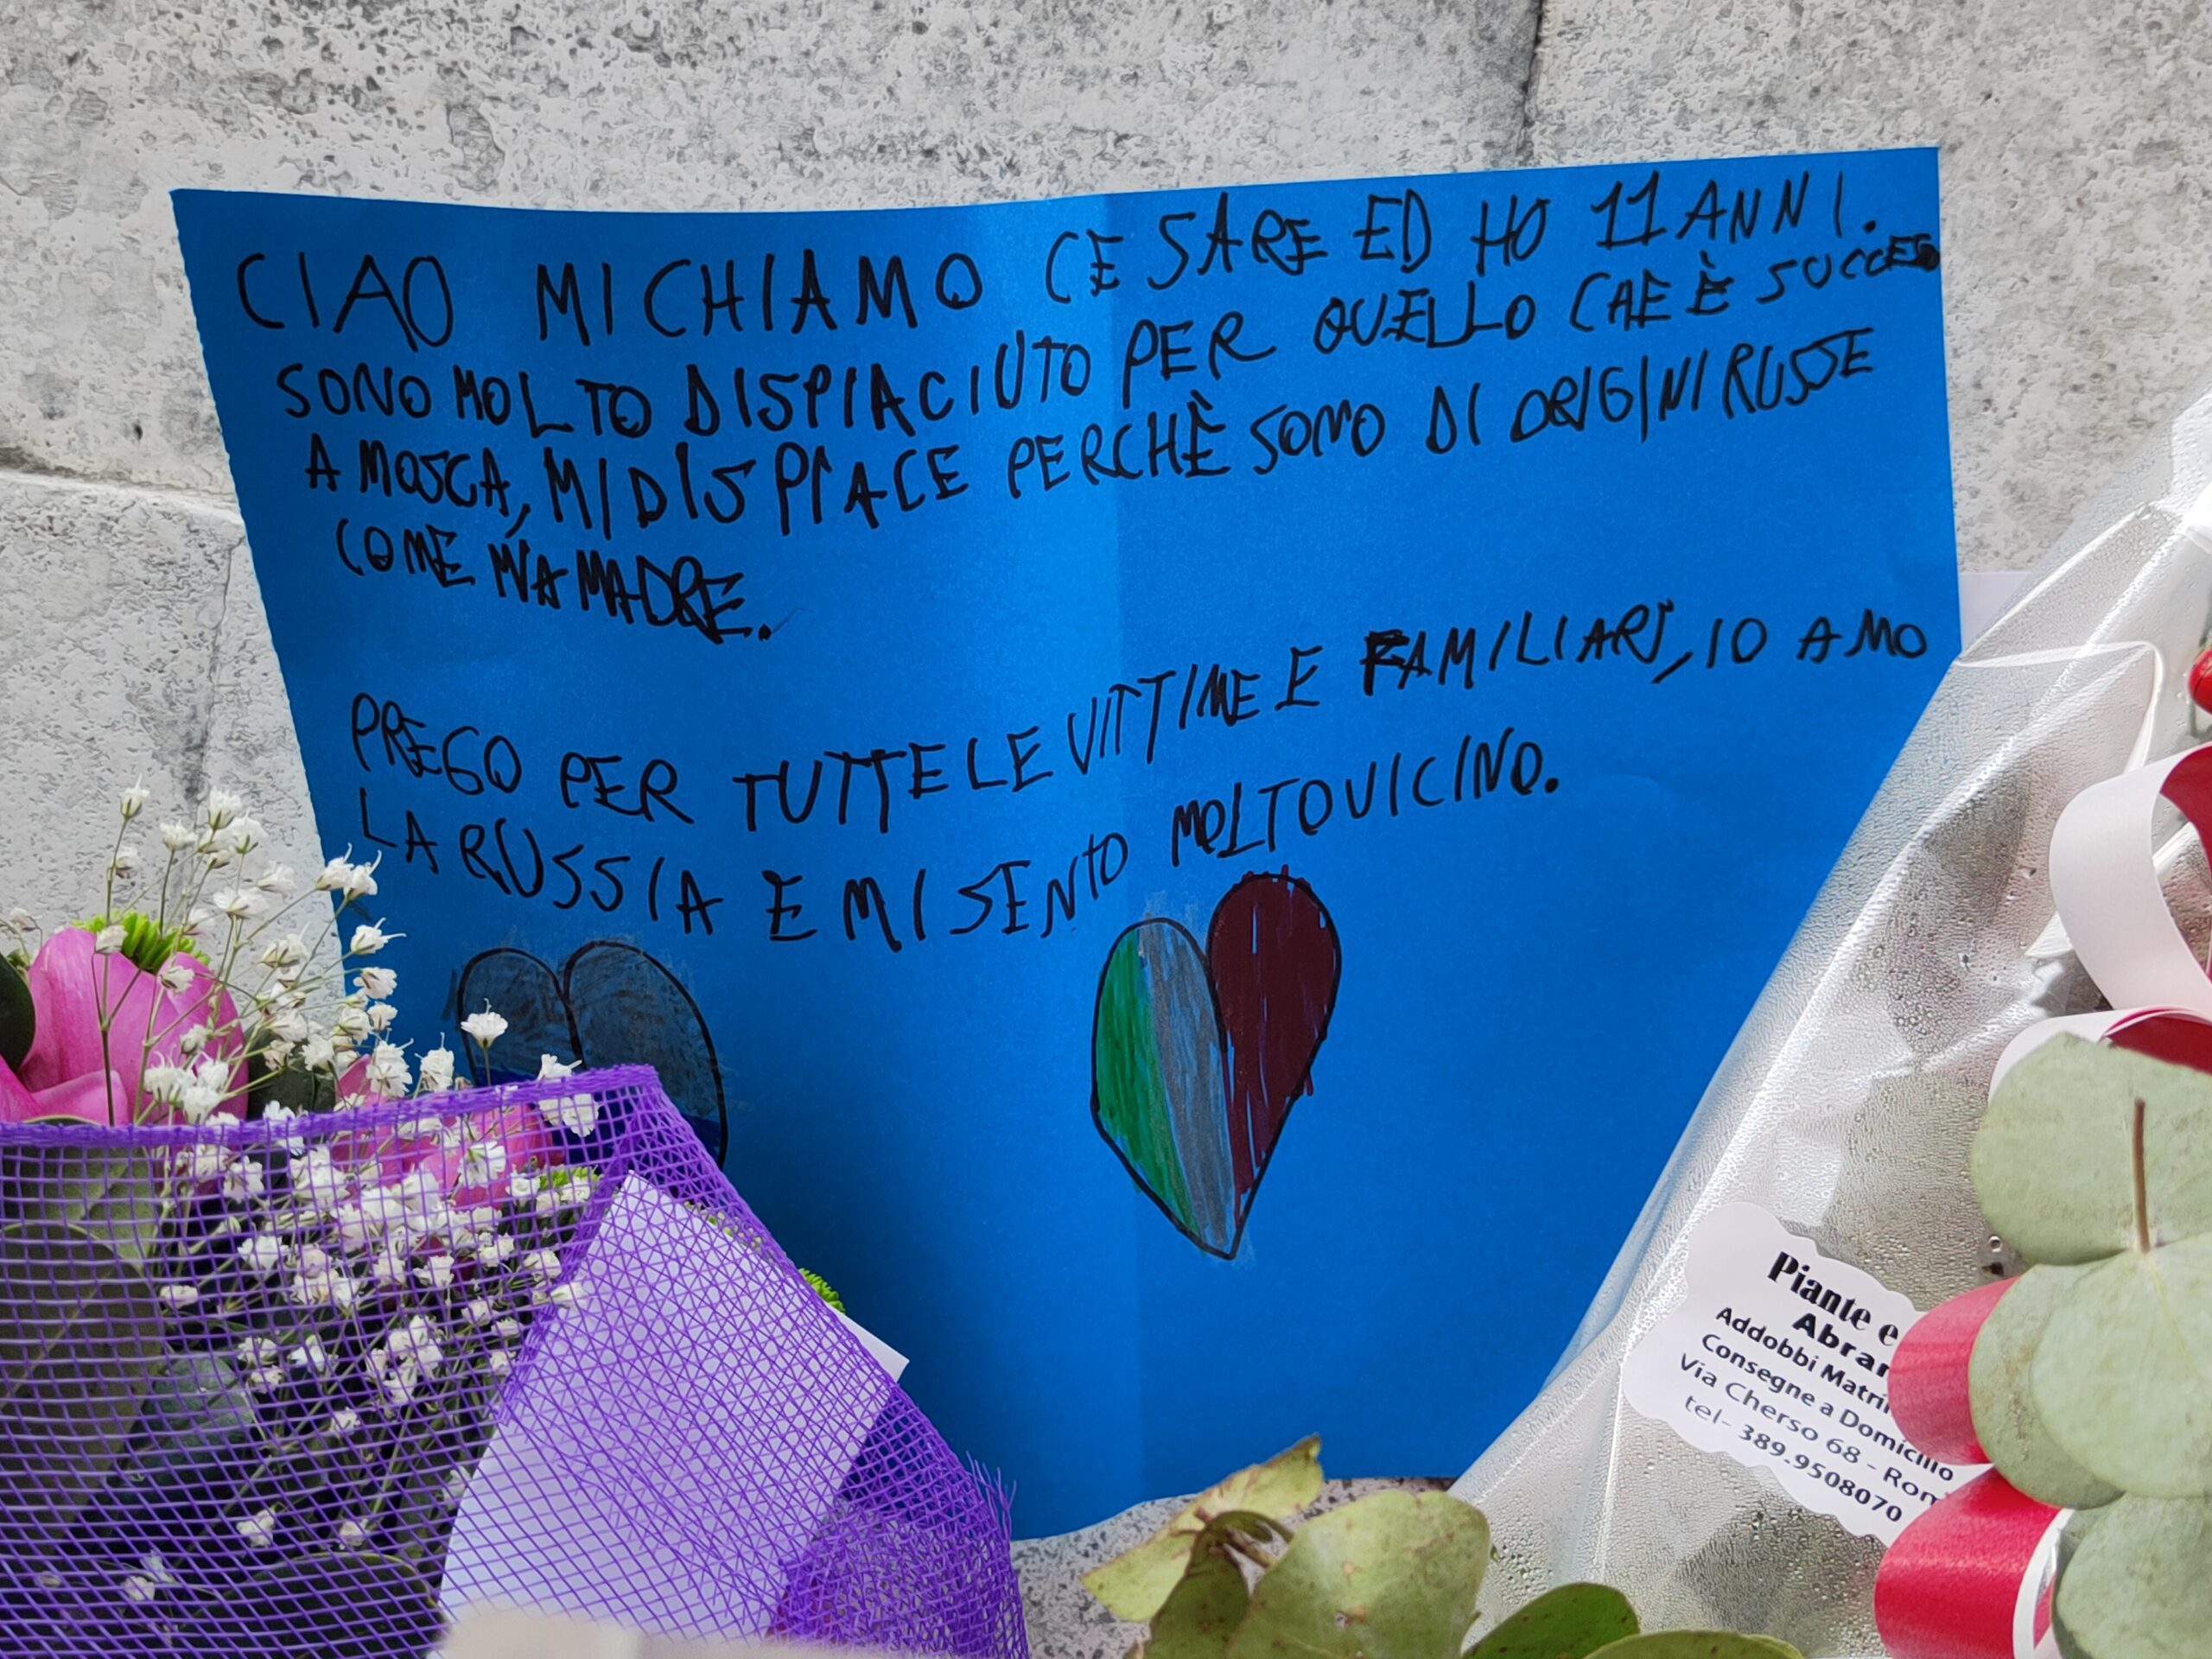 CIAO MI CHIAMO CESARE ED HO 11 ANNI.
SONO MOLTO DISPIACIUTO PER QUELLO CHE È SUCCESSO
A MOSCA, MI DISPIACE PERCHÈ SONO DI ORIGINI RUSSE
COME MIA MADRE.
PREGO PER TUTTE LE VITTIME E FAMILIARI, IO AMO
LA RUSSIA E MI SENTO MOLTO VICINO.
Piante e
Abram
Addobbi Matri
Consegne a Domicilio
Via Cherso 68 - Rom
tel- 389.9508070